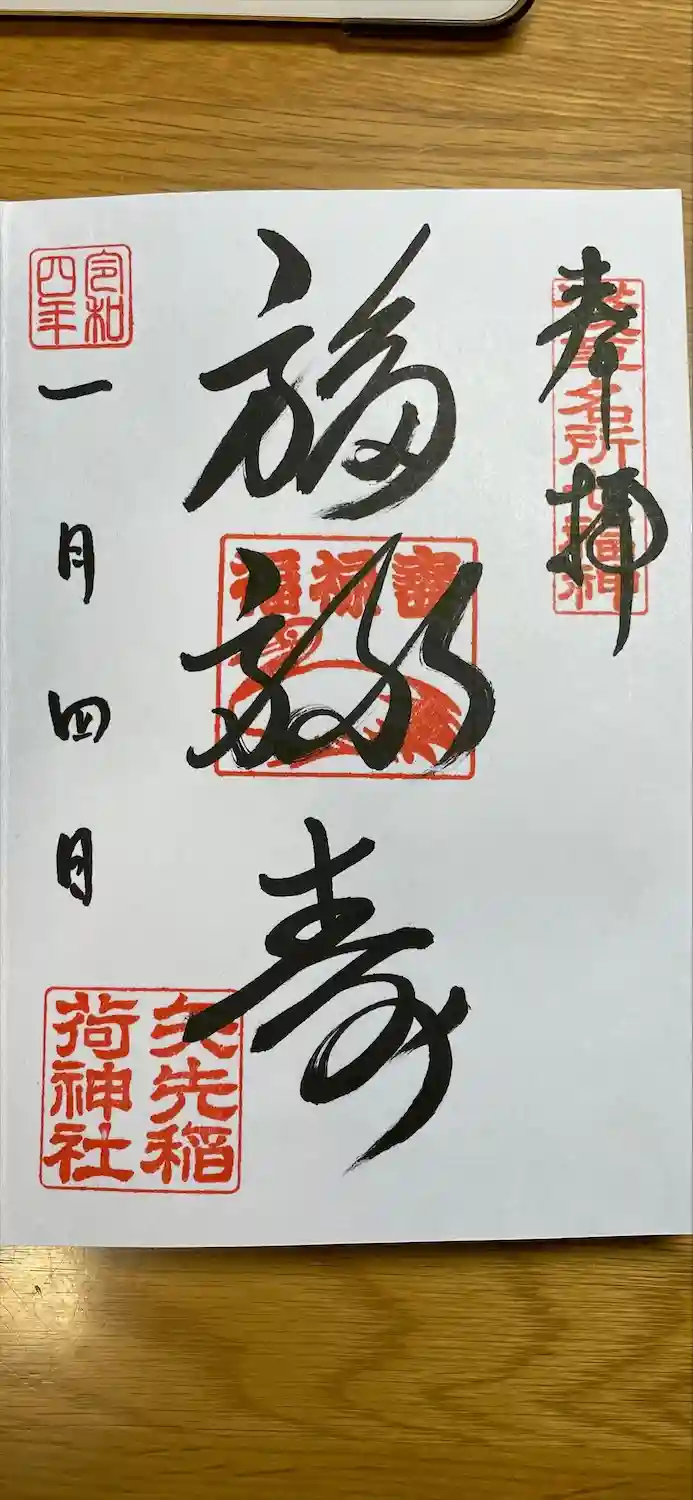 奉拝
浅草名所七福神
福禄寿
福禄寿
令和四年
一月四日
矢先稲荷神社